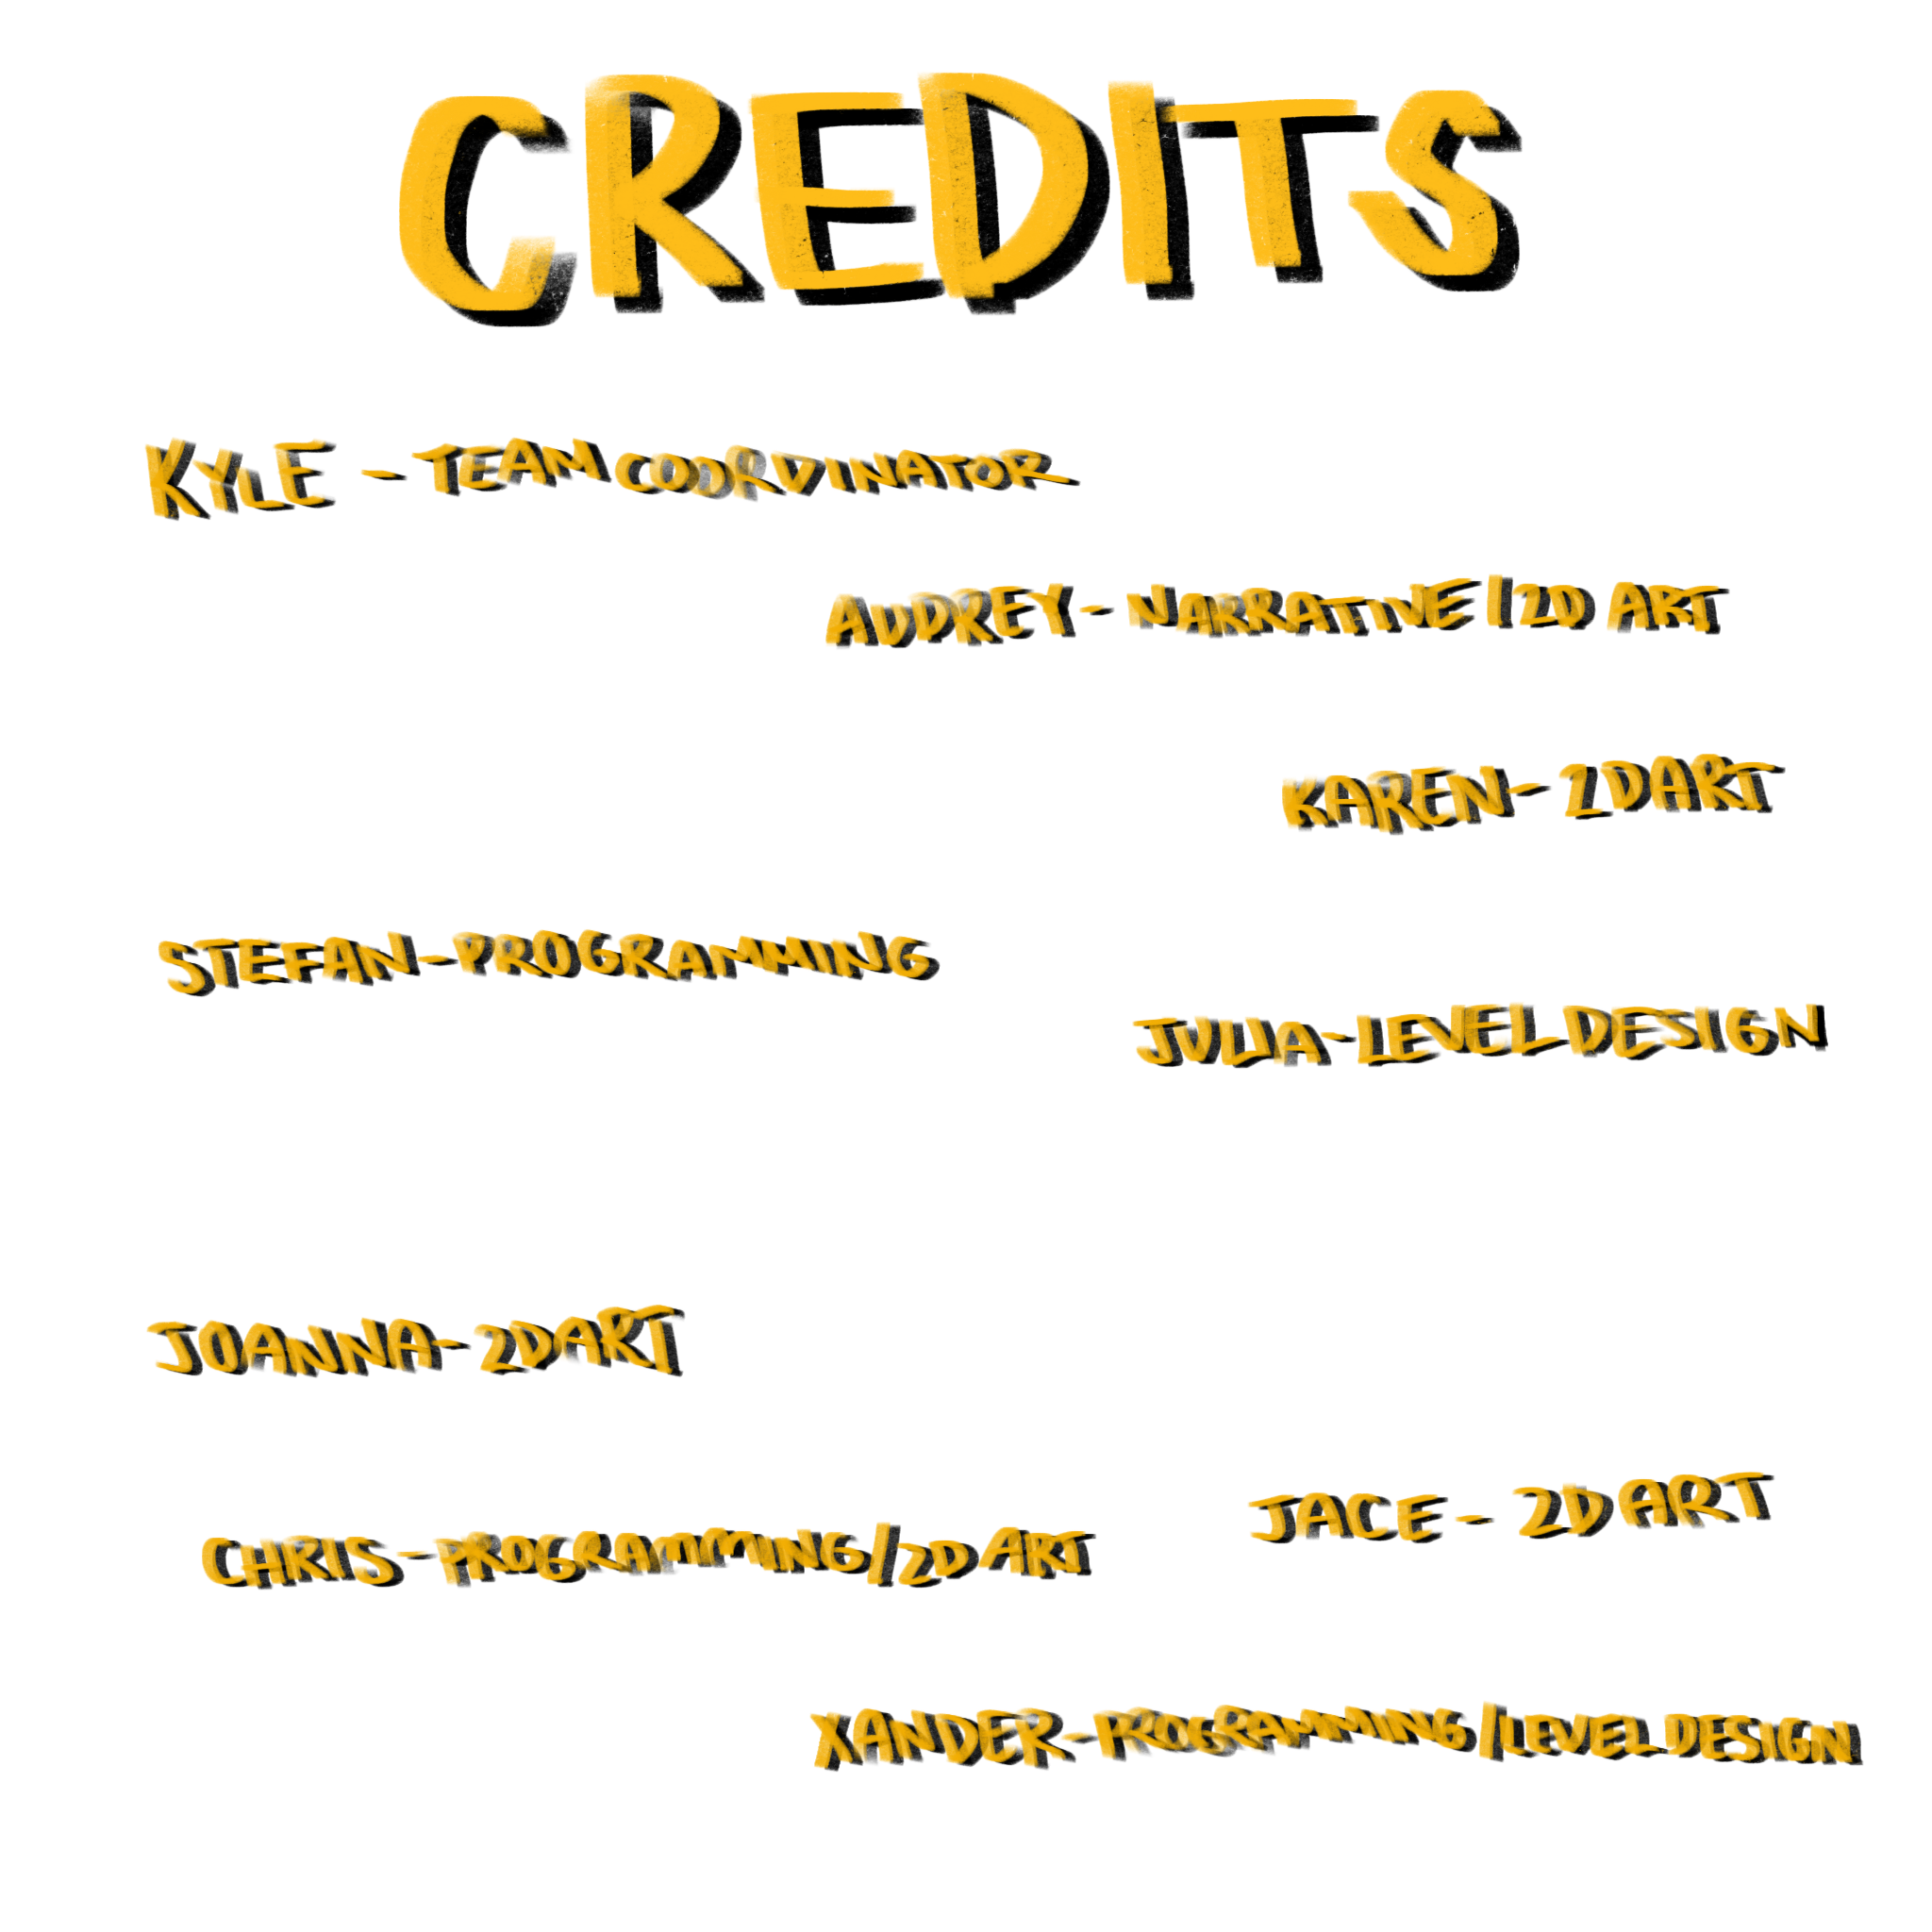 CREDITS
KYLE - TEAM COORDINATOR
AUDREY - NARRATIVE / 2D ART
KAREN - 2D ART
STEFAN - PROGRAMMING
JULIA - LEVEL DESIGN
JOANNA - 2D ART
JACE - 2D ART
CHRIS - PROGRAMMING / 2D ART
XANDER - PROGRAMMING / LEVEL DESIGN